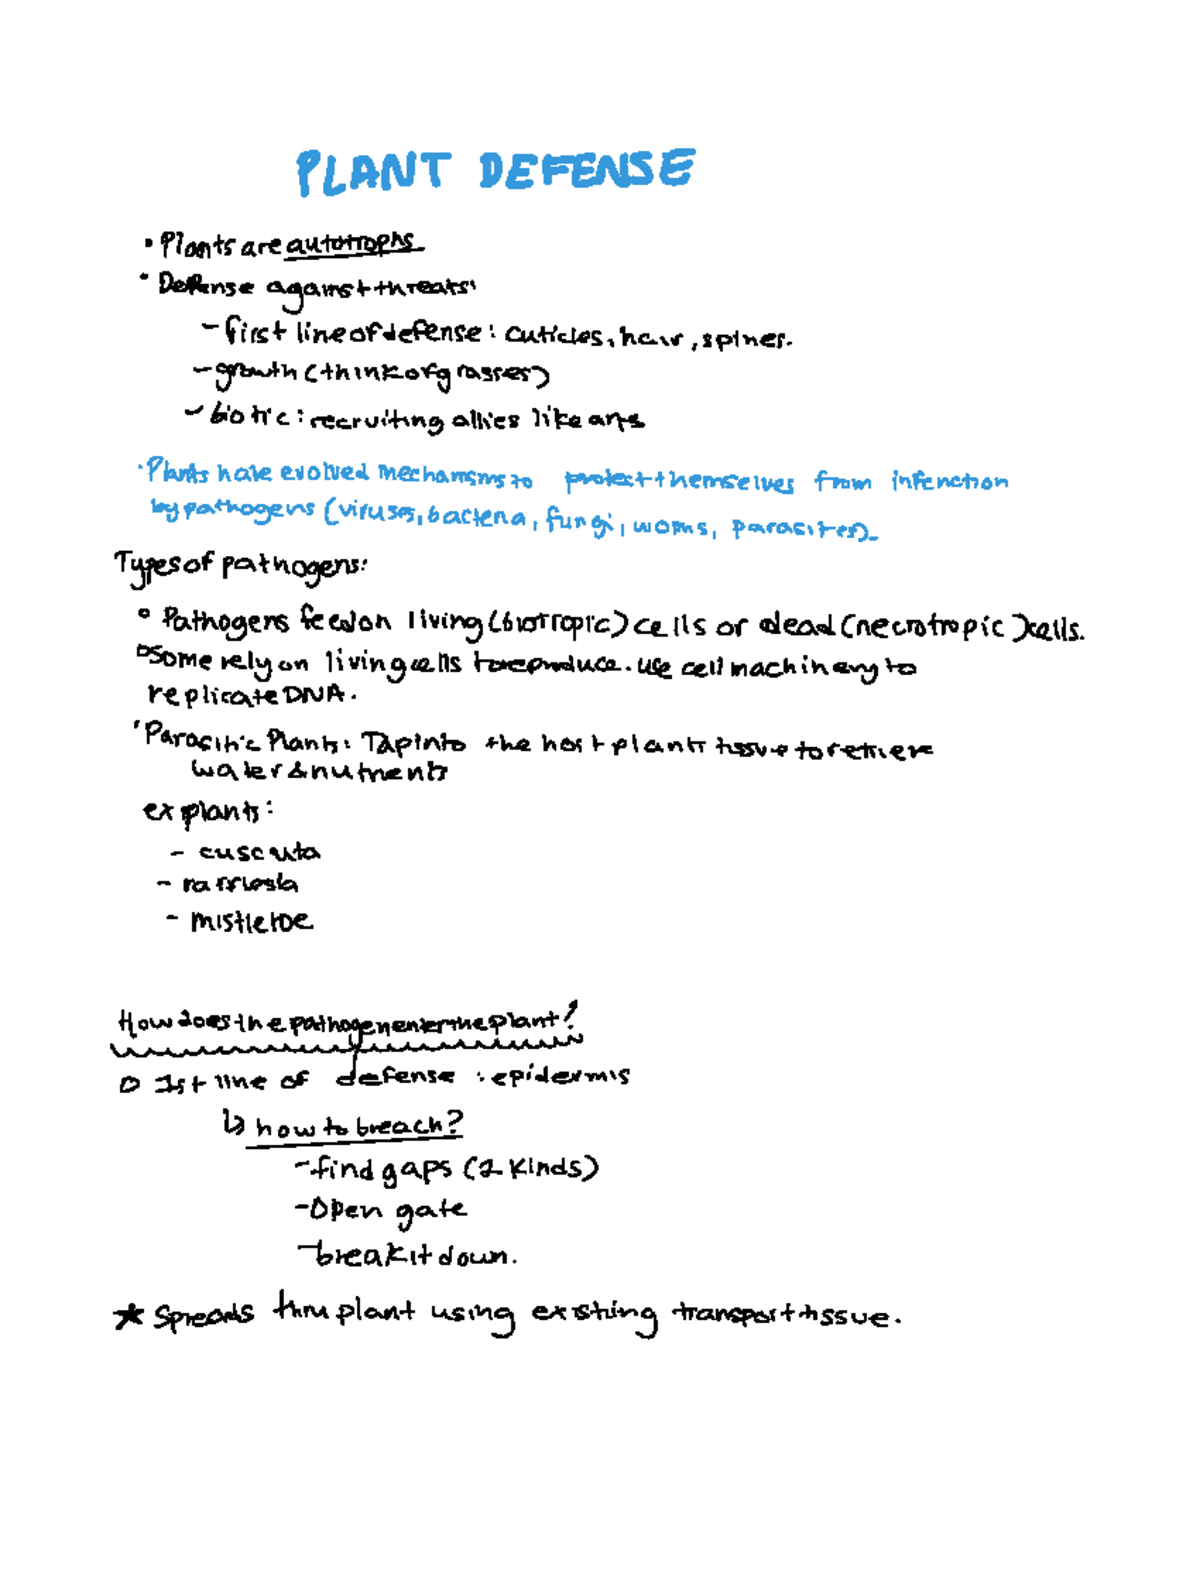 PLANT DEFENSE
• Plants are autotrophs
• Defense against threats:
- first line of defense: cuticles, hair, spines.
- growth (think of grasses)
- biotic: recruiting allies like ants
• Plants have evolved mechanisms to protect themselves from infenction
by pathogens (viruses, bacteria, fungi, worms, parasites).
Types of pathogens:
• Pathogens feed on living (biotropic) cells or dead (necrotropic) cells.
• Some rely on living cells to reproduce. use cell machinery to
replicate DNA.
• Parasitic Plants: Tap into the host plants tissue to retrieve
water & nutrients
ex plants:
- cuscuta
- mistletoe
How does the pathogen enter the plant?
O 1st line of defense : epidermis
↳ how to breach?
- find gaps (2 kinds)
- Open gate
- break it down.
★ Spreads thru plant using existing transport tissue.